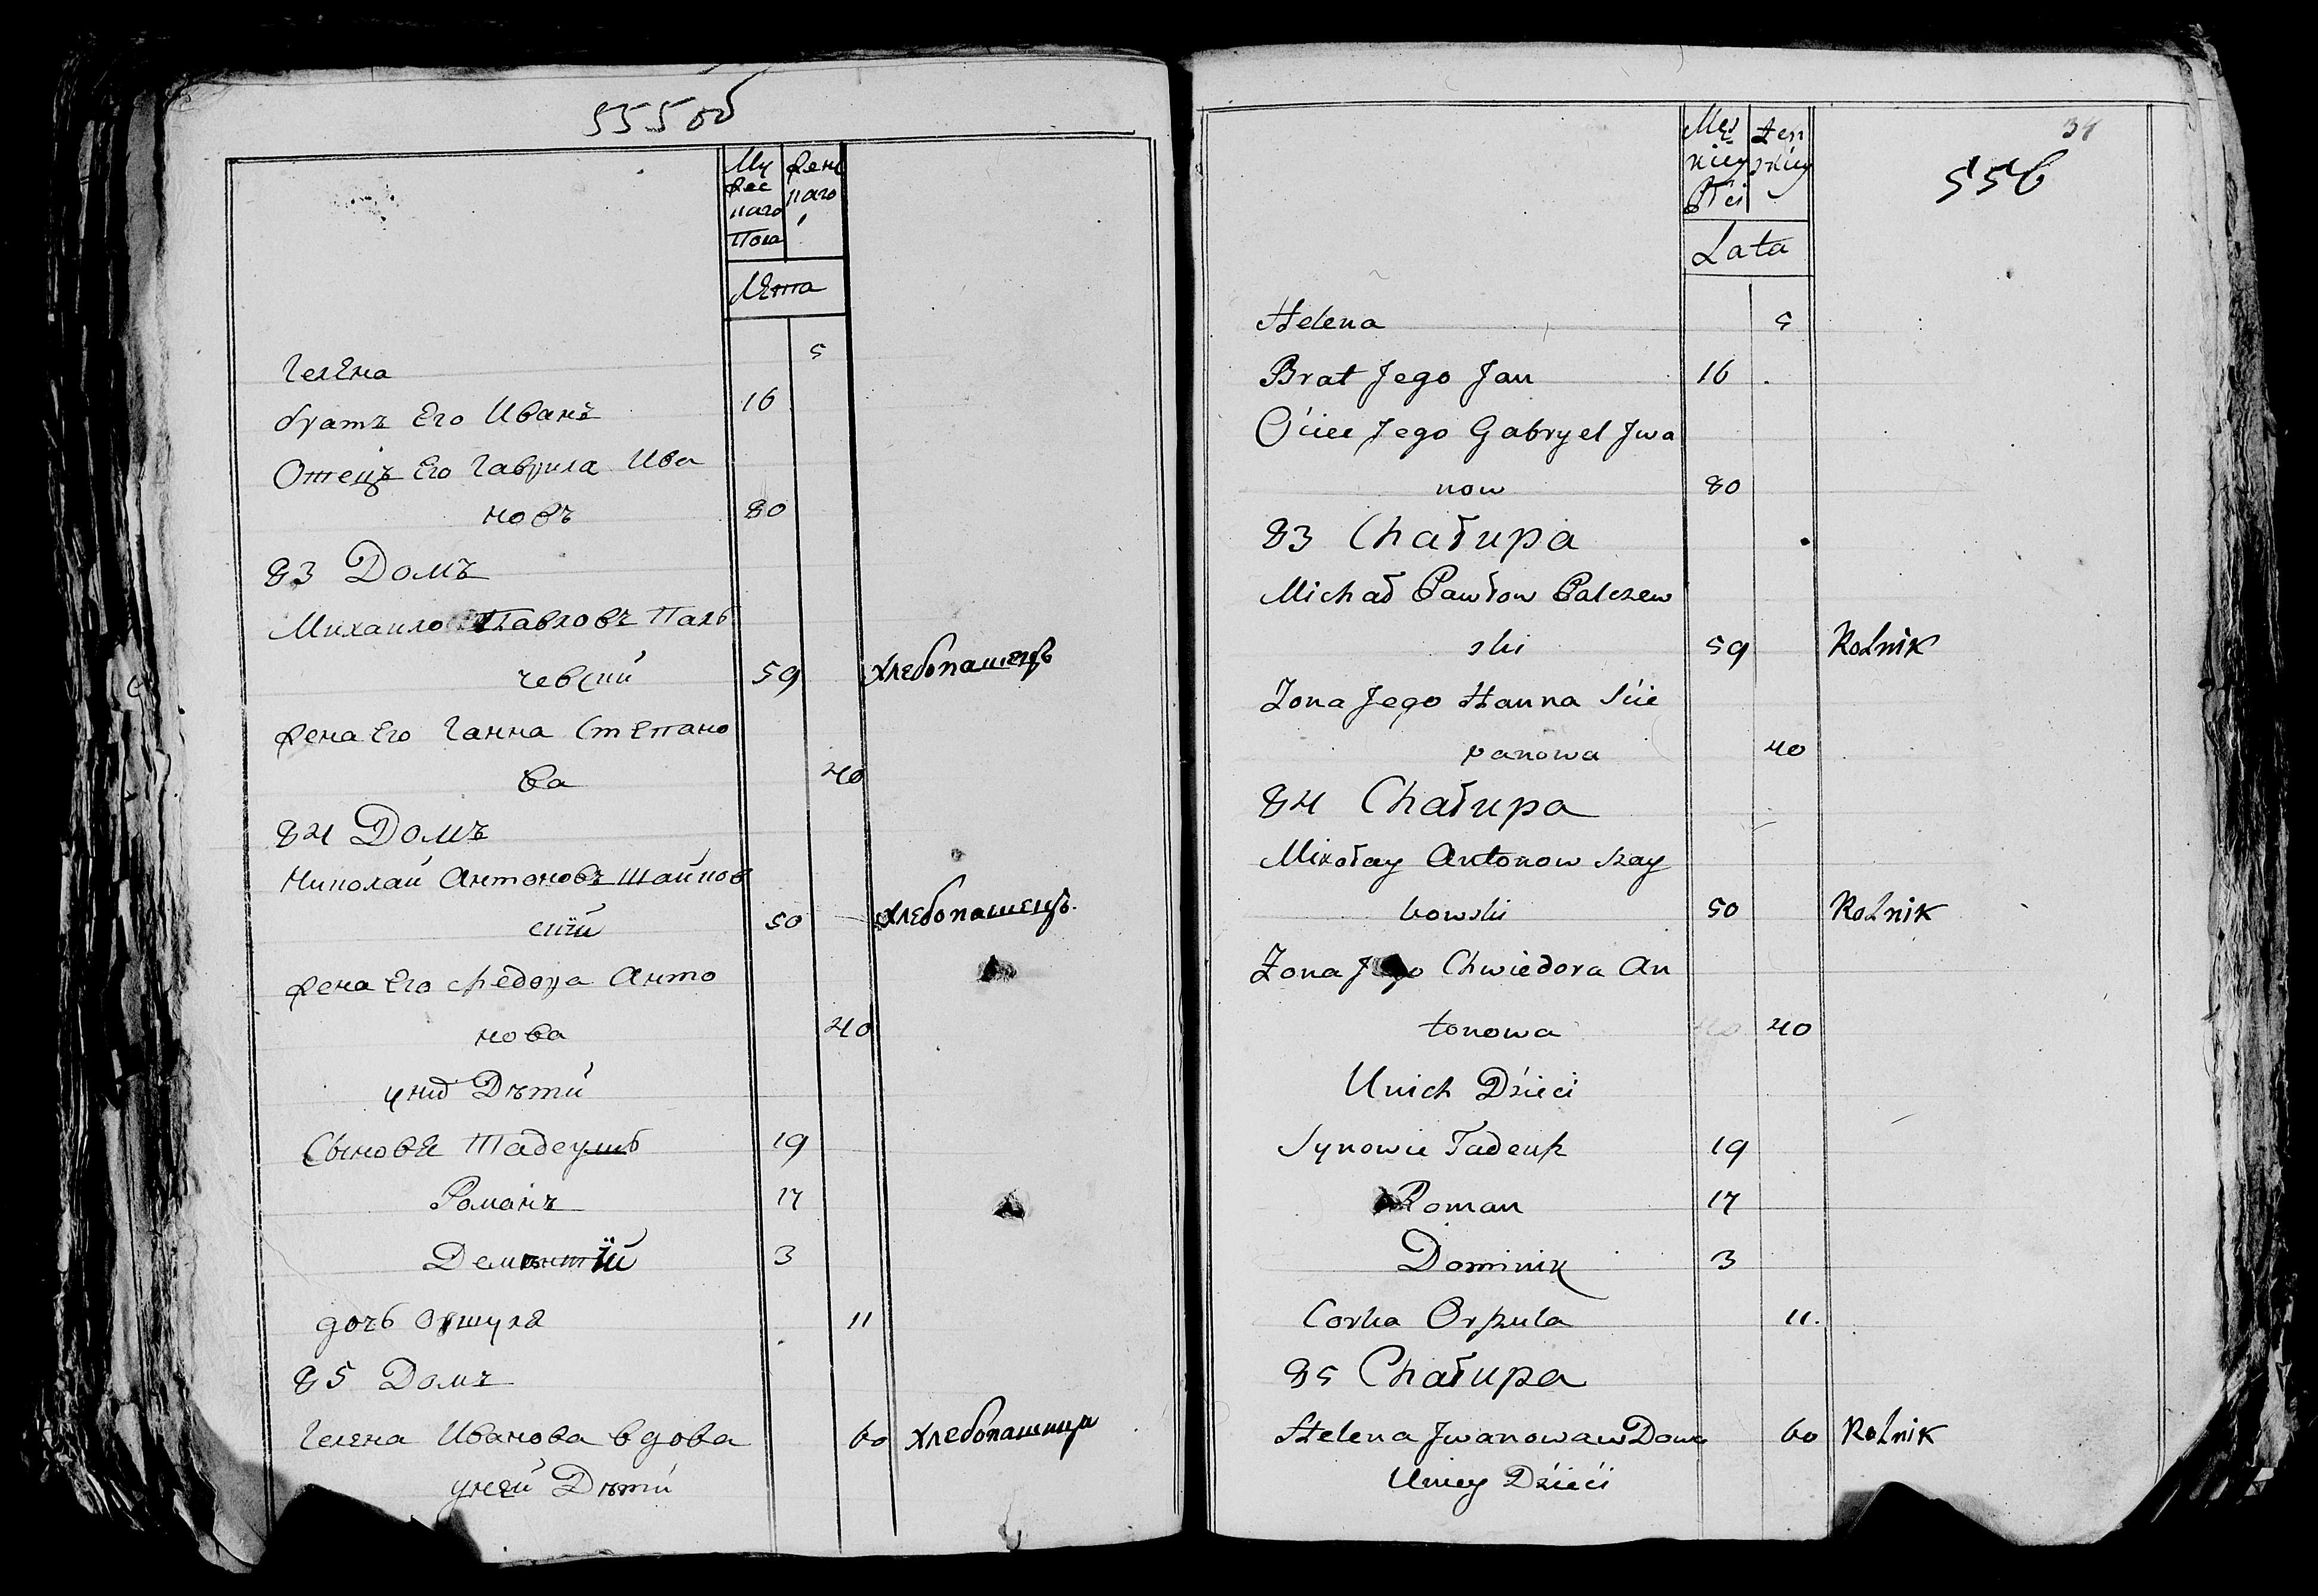 555 об
Му
жес
каго
Пола
жен
каго
Лѣта
Гелена 5
братъ Его Иванъ 16
Отецъ Его Гаврила Ива
новъ 80
83 Домъ
Михаило Павловъ Паль
чевский 59 хлебопашецъ
жена Его Ганна Степано
ва 40
84 Домъ
Николай Антоновъ Шайков
ский 50 хлебопашецъ
жена Его Федора Анто
нова 40
у них Дѣти
Сыновя Тадеушъ 19
Романъ 17
Дементїй 3
дочь Оршуля 11
85 Домъ
Гелена Иванова вдова 60 хлебопашица
у ней Дѣти
34
556
Męz
kiey
Płci
Żen
skiey
Lata
Helena 5
Brat Jego Jan 16
Oćiec Jego Gabryel Jwa
now 80
83 Chałupa
Michał Pawłow Palczew
ski 59 Rolnik
Żona Jego Hanna Scie
panowa 40
84 Chałupa
Mikołay Antonow Szay
kowski 50 Rolnik
Żona Jego Chwiedora An
tonowa 40
U nich Dzieci
Synowie Tadeusz 19
Roman 17
Dominik 3
Corka Orszula 11.
85 Chałupa
Helena Jwanowa wDowa 60 Rolnik
U niey Dzieći